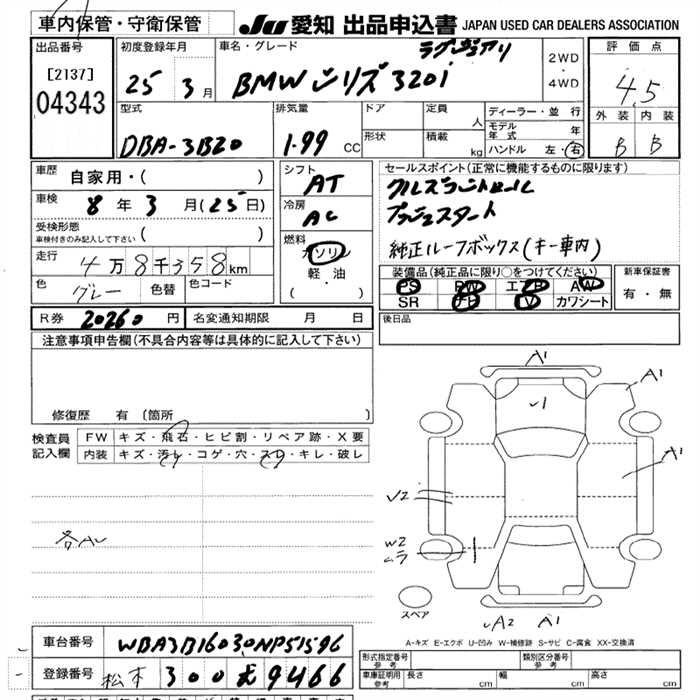 車内保管・守衛保管
JU 愛知 出品申込書 JAPAN USED CAR DEALERS ASSOCIATION
出品番号
[2137]
04343
初度登録年月
25 3月
車名・グレード
ラグジュアリ
BMW シリズ 320i
2WD
・
4WD
評価点
4.5
外装 内装
B B
型式
DBA-3B20
排気量
1.99 CC
ドア
形状
定員
人
積載
kg
ディーラー・並行
モデル年式 年
ハンドル 左・右
車歴
自家用・( )
車検
8年3月(25日)
受検形態
車検付きのみ記入して下さい ( )
走行
4万8千358km
色
グレー
色替
色コード
シフト
AT
冷房
AC
燃料
ガソリン
軽・油
( ・ )
セールスポイント(正常に機能するものに限ります)
クルズコントロール
プッシュスタート
純正ルーフボックス(キー車内)
装備品(純正品に限り○をつけてください)
PS PW エアB AW
SR ナビ TV カワシート
新車保証書
有・無
R券 20260円
名変通知期限 月 日
後日品
注意事項申告欄(不具合内容等は具体的に記入して下さい)
修復歴 有〔箇所 〕
検査員
記入欄
FW キズ・飛石・ヒビ割・リペア跡・X要
内装 キズ・汚レ・コゲ・穴・スレ・キレ・破レ
A1
√1
A1
A1
√2
W2
ムラ
スペア
A2 A1
A-キズ E-エクボ U-凹み W-補修跡 S-サビ C-腐食 XX-交換済
車台番号
WBA3B16030NP51596
登録番号
松本 300 9466
型式指定番号
参考
類別区分番号
参考
車庫証明用
参考
長さ cm
幅 cm
高さ cm